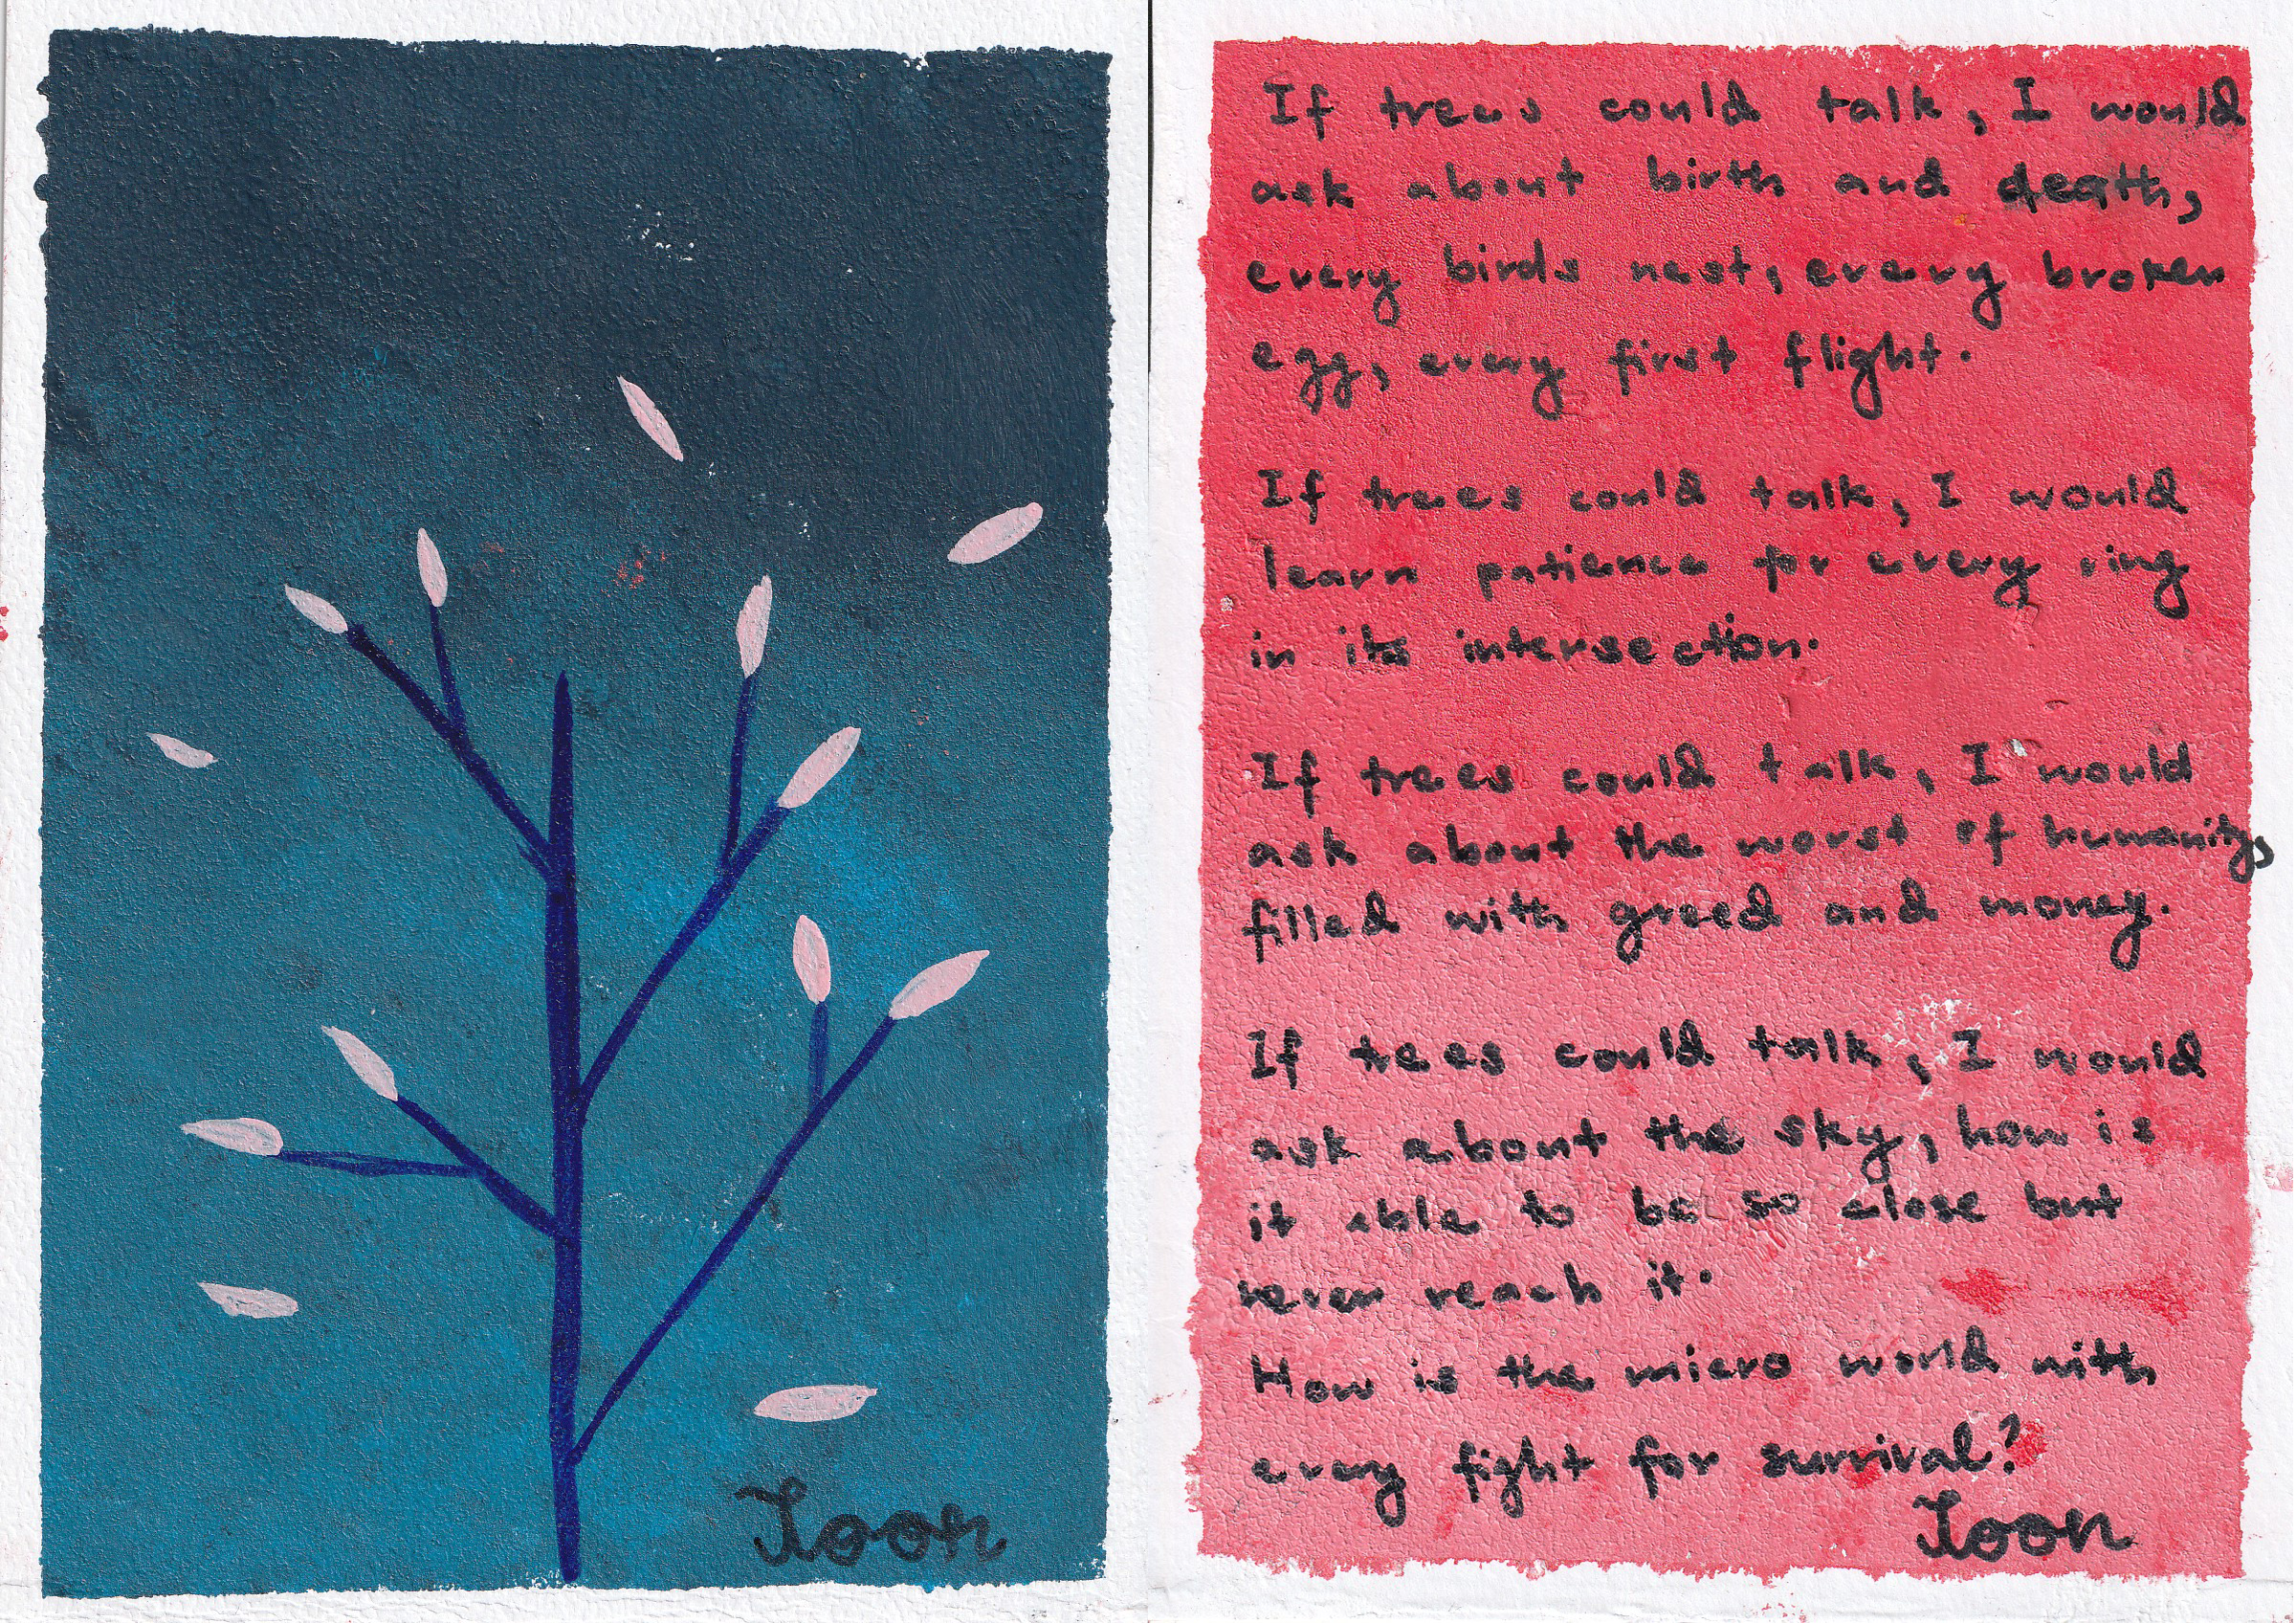 Loon
If trees could talk, I would
ask about birth and death,
every birds nest, every broken
egg, every first flight.
If trees could talk, I would
learn patience for every ring
in its intersection.
If trees could talk, I would
ask about the worst of humanity,
filled with greed and money.
If trees could talk, I would
ask about the sky, how is
it able to be so close but
never reach it.
How is the micro world with
every fight for survival?
Loon